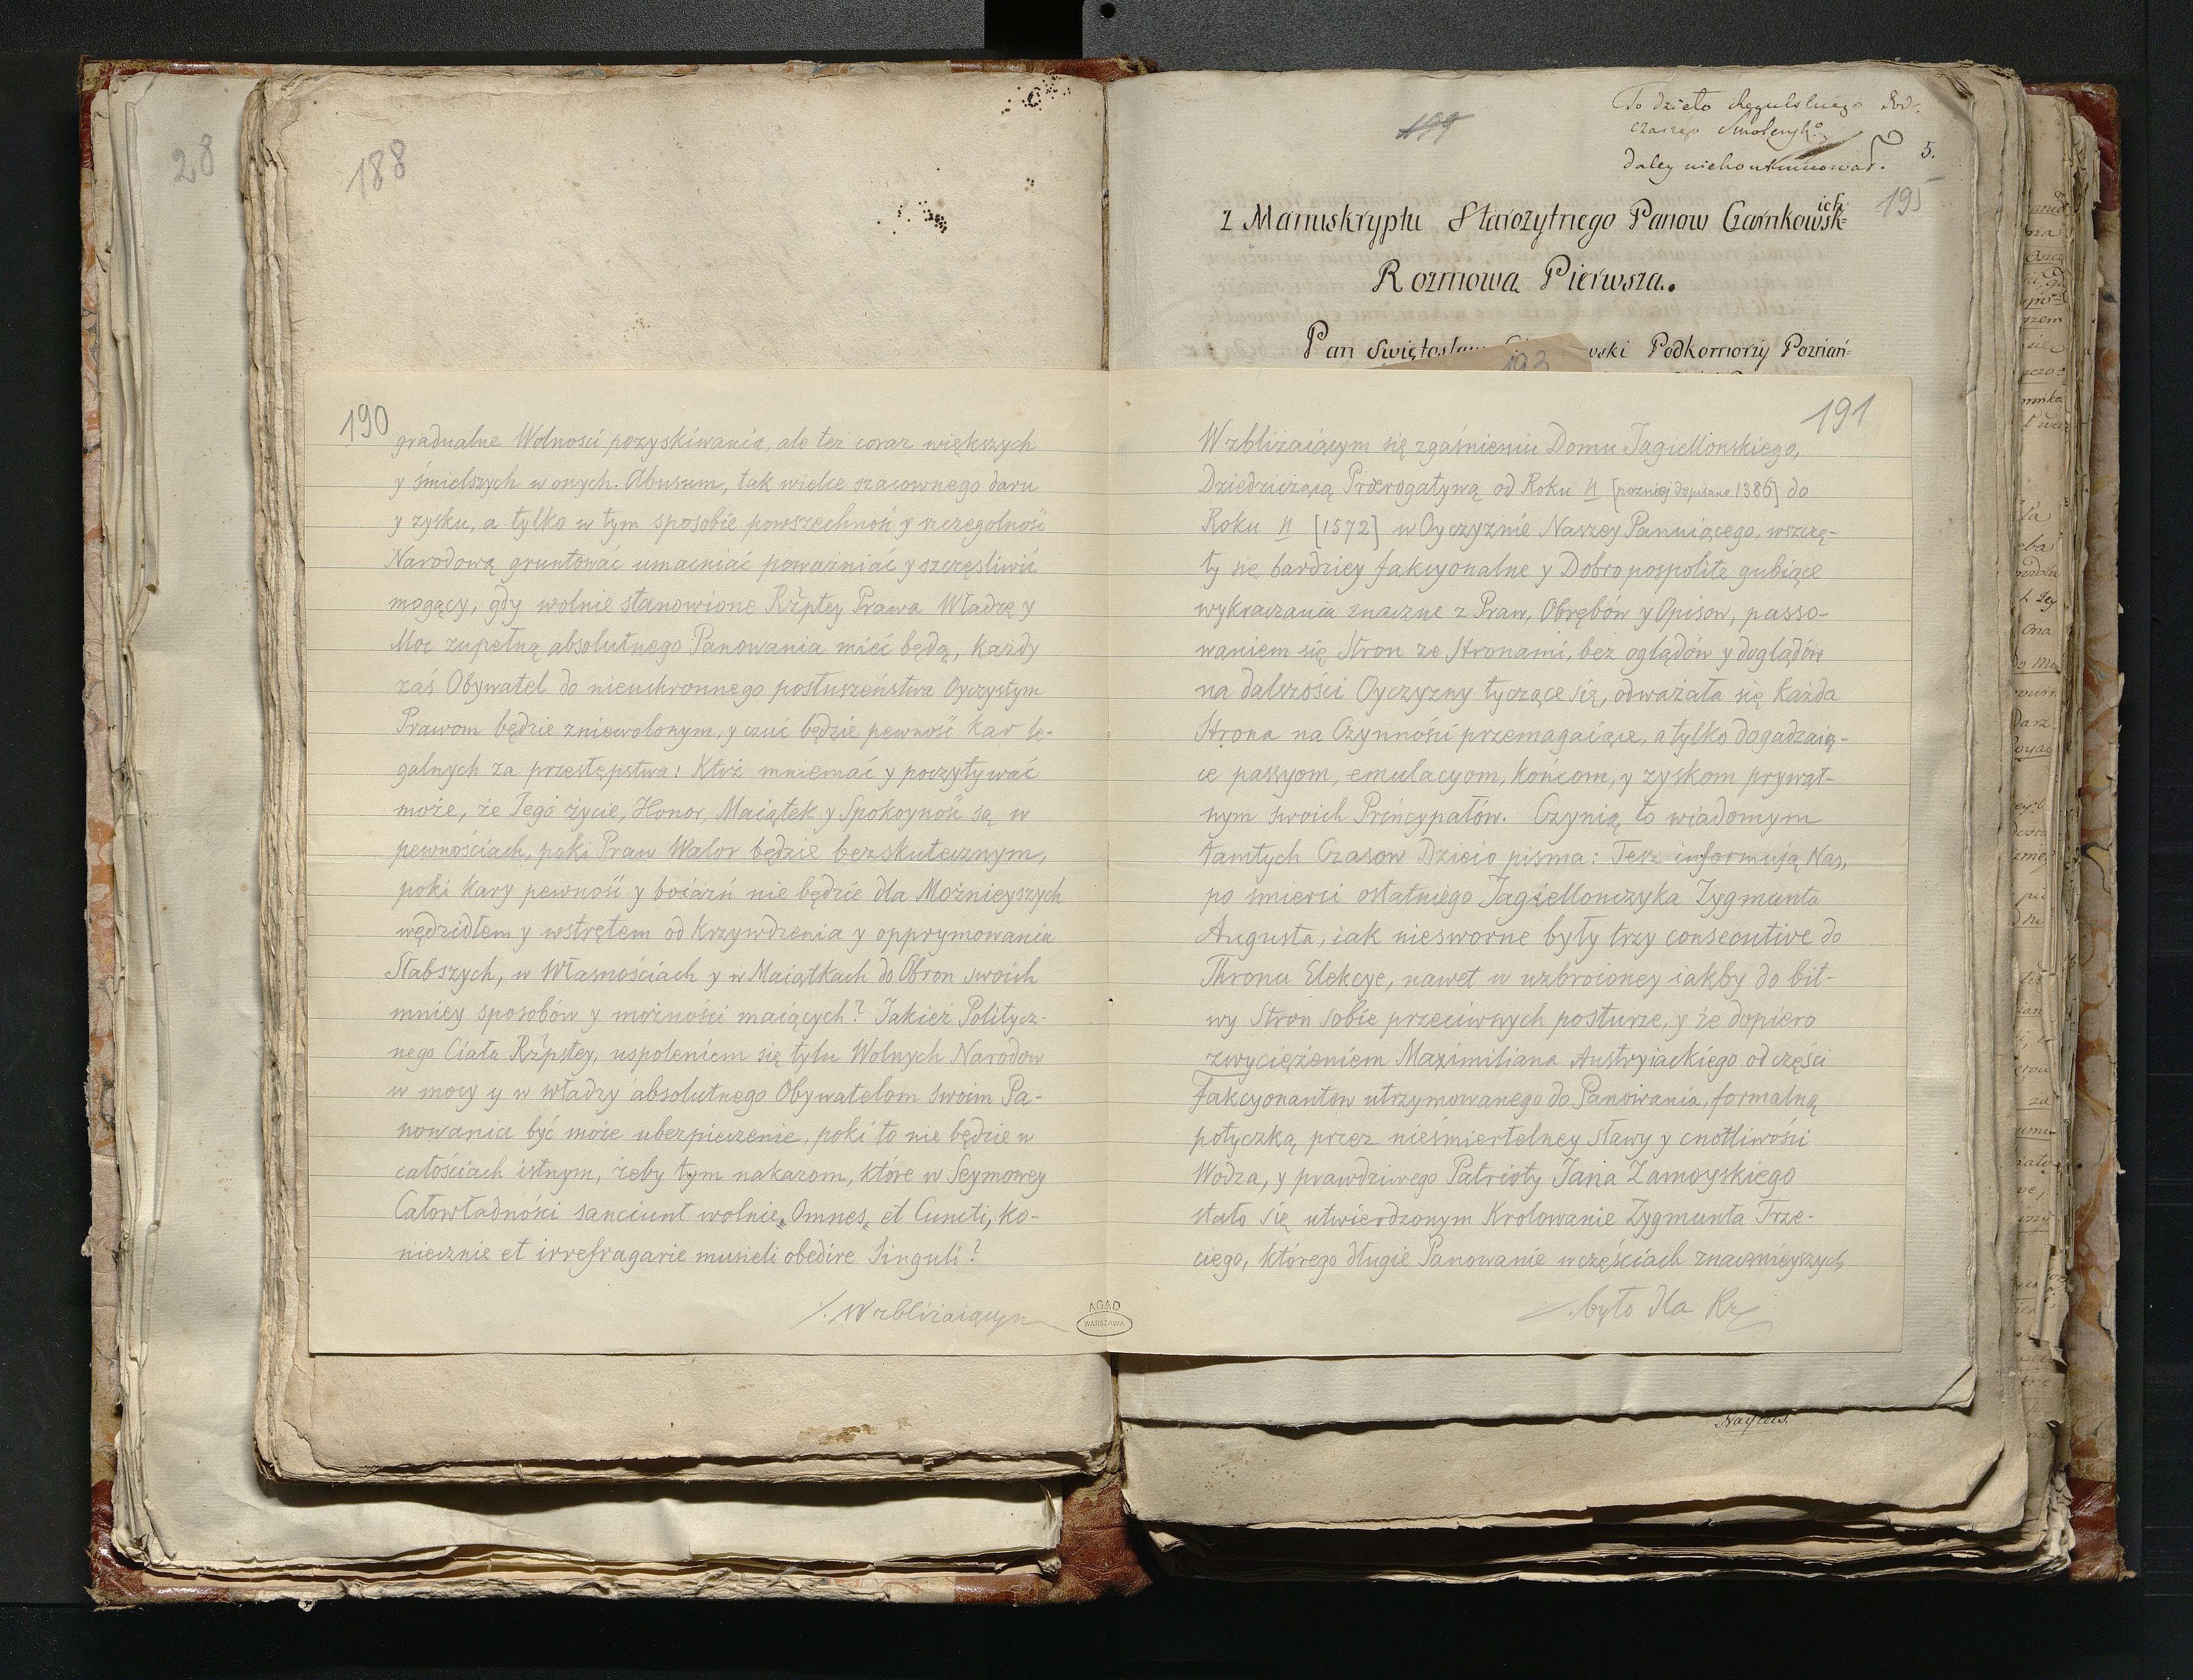 28
188
190
gradualne Wolności pozyskiwania, ale też coraz większych
y śmielszych w onych. Abusum, tak wielce szacownego daru
y zysku, a tylko w tym sposobie powszechność y szczególność
Narodową gruntować umacniać poważniać y szczęsliwić
mogący, gdy wolnie stanowione Rzpltey Prawa Władzę y
Moc zupełną absolutnego Panowania mieć będą, każdy
zaś Obywatel do nieuchronnego posłuszeństwa Oyczystym
Prawom będzie zniewolonym, y czuć będzie pewność kar le-
galnych za przestępstwa: Któż mniemać y poczytywać
może, że Jego życie, Honor, Maiątek y Spokoyność są w
pewnościach, poki Praw Walor będzie bezskutecznym,
poki Kary pewność y boiaźń nie będzie dla Możnieyszych
wędzidłem y wstrętem od krzywdzenia y opprymowania
Słabszych, w Własnościach y w Maiątkach do Obron swoich
mniey sposobów y możności maiących? Jakież Politycz-
nego Ciała Rzpstey, uspoleniem się tylu Wolnych Narodow
w mocy y w władzy absolutnego Obywatelom swoim Pa-
nowania być może ubezpieczenie, poki to nie będzie w
całościach istnym, żeby tym nakazom, które w Seymowey
Całowładności sanciunt wolnie „Omnes„ et Cuncti, ko-
niecznie et irrefragarie musieli obedire Singuli?
/. Wzbliżaiącym
AGAD
WARSZAWA
199
To dzieło Regulskiego
czaszego Smoleńsk:o
daley niekontinuował.
5.
195
z Manuskryptu Starożytnego Panow Czarnkowsk=
ich
Rozmowa Pierwsza.
Pan Swiętosław wski Podkomorzy Poznań=
193
191
Wzbliżaiącym się zgaśnieniu Domu Jagiellonskiego,
Dziedziczącą Prærogatywą od Roku n [pozniej dopisano 1386] do
Roku n [1572] w Oyczyznie Naszey Panuiącego, wszczę-
ty się bardziey fakcyonalne y Dobro pospolite gubiące
wykraczania znaczne z Praw, Obrębów y Opisow, passo-
waniem się Stron ze Stronami, bez oglądów y doglądów
na dalszości Oyczyzny tyczące się, odważała się każda
Strona na Czynności przemagaiące, a tylko dogadzaią-
ce passyom, emulacyom, końcom, y zyskom prywat-
nym swoich Pryncypałów. Czynią to wiadomym
tamtych Czasow Dzieio pisma: Też informują Nas,
po śmierci ostatniego Jagiellonczyka Zygmunta
Augusta, iak niesworne były trzy consecutive do
Thronu Elekcye, nawet w uzbroioney iakby do bit-
wy Stron sobie przeciwnych posturze, y że dopiero
zwyciężeniem Maximiliana Austryiackiego od części
Fakcyonantow utrzymowanego do Panowania, formalną
potyczką przez nieśmiertelney sławy y cnotliwości
Wodza, y prawdziwego Patrioty Jana Zamoyskiego
stało się utwierdzonym Krolowanie Zygmunta Trze-
ciego, którego długie Panowanie w częściach znacznieyszych
/. było dla Rz